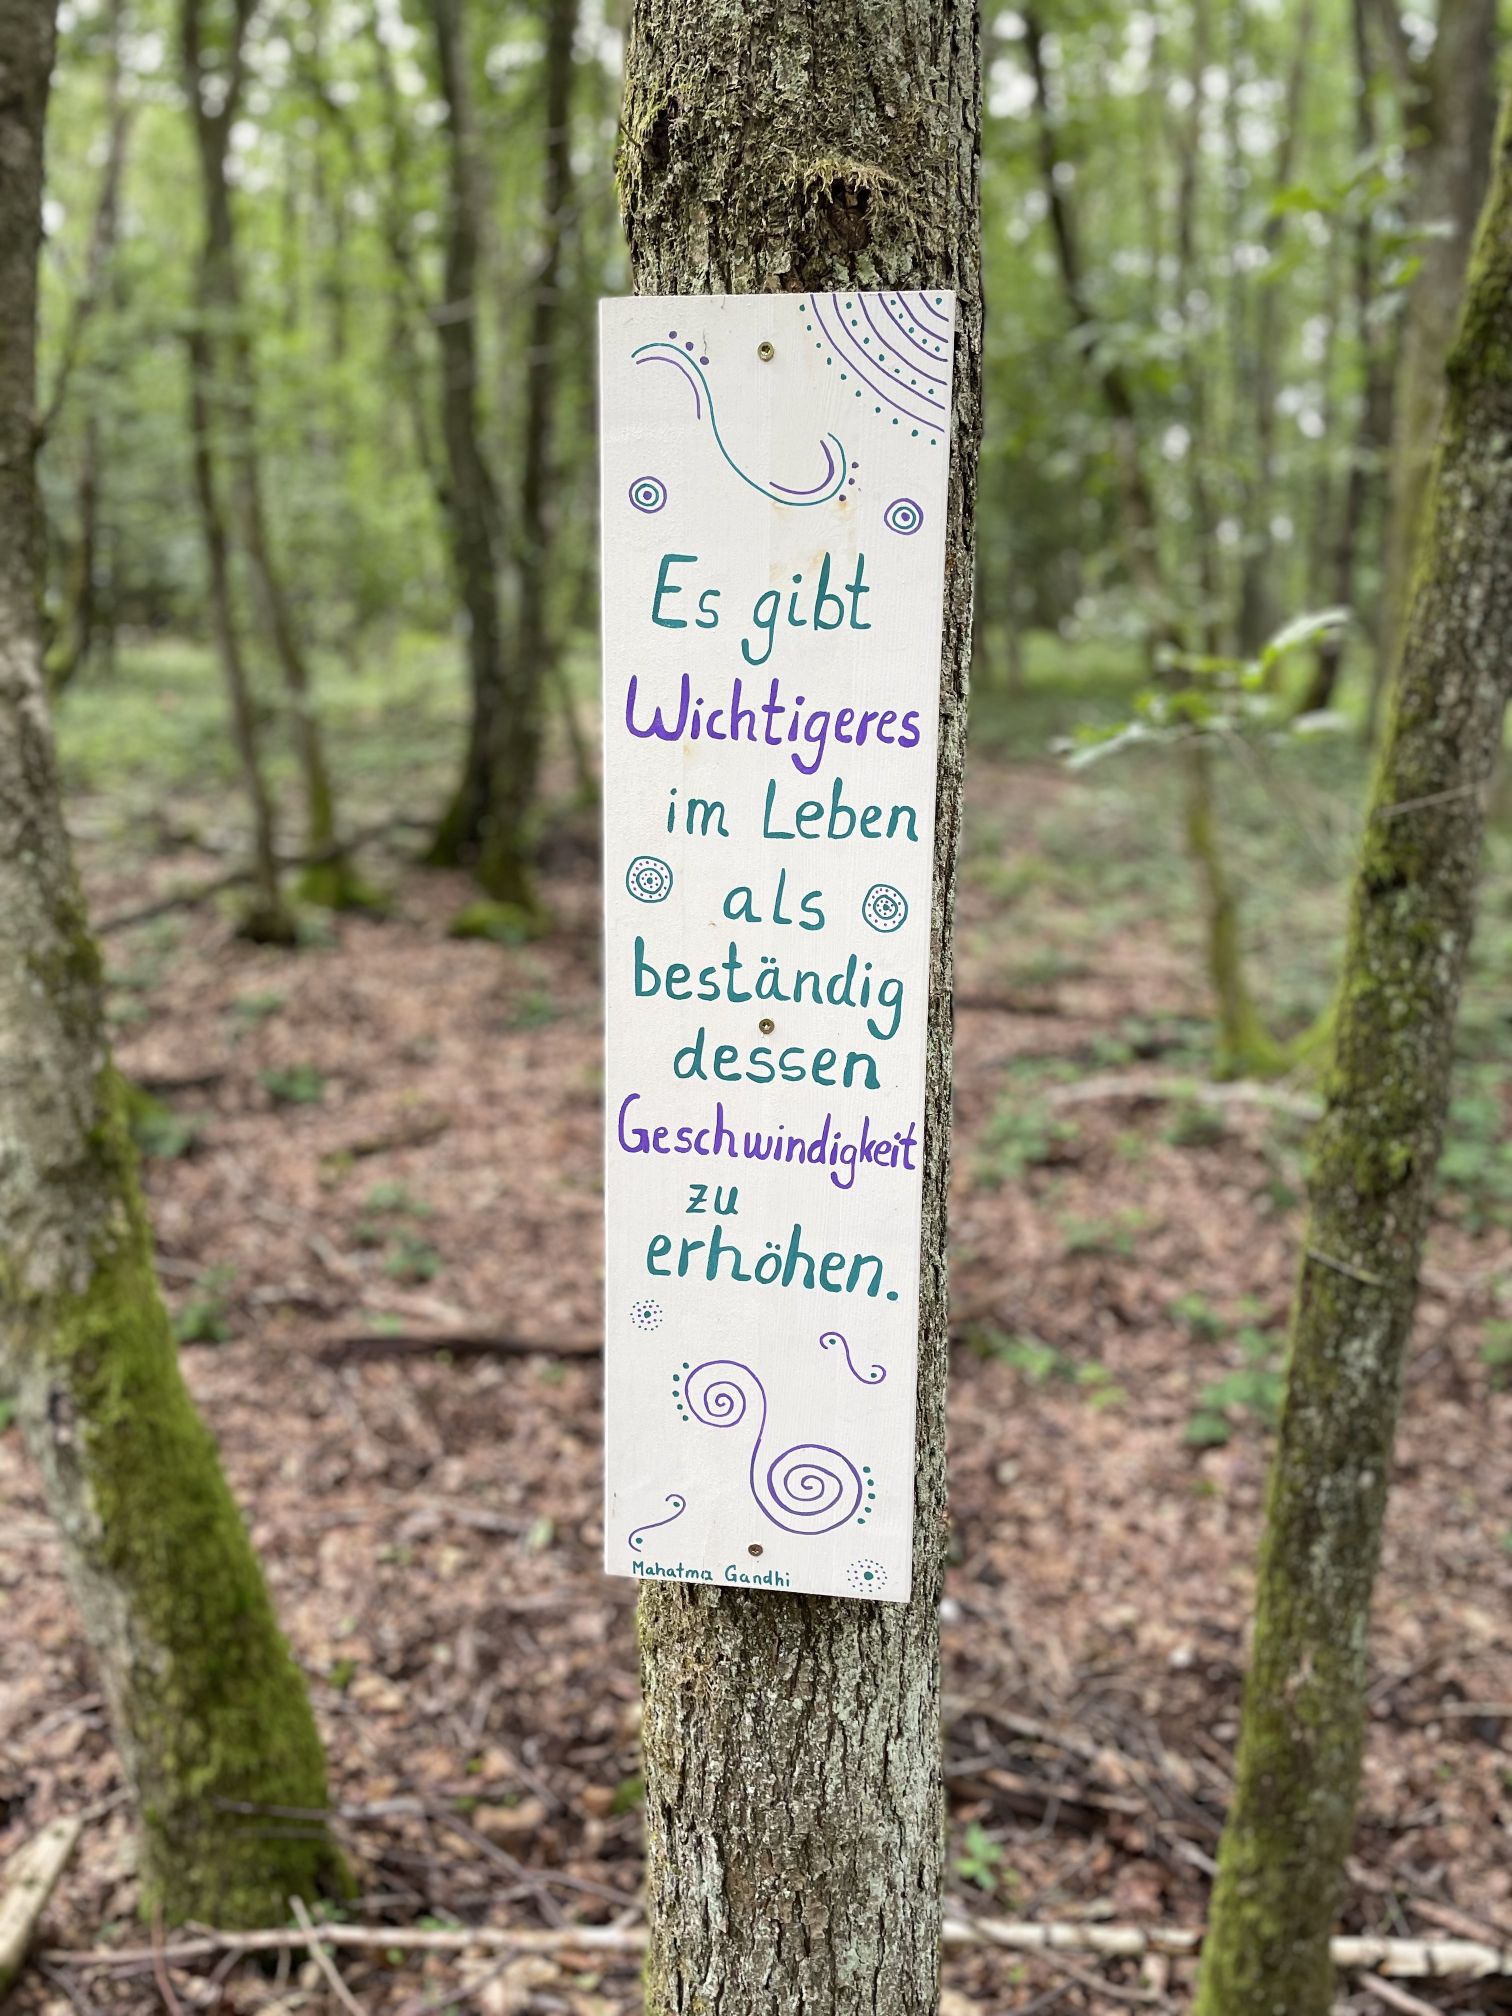 Es gibt
Wichtigeres
im Leben
als
beständig
dessen
Geschwindigkeit
zu
erhöhen.
Mahatma Gandhi